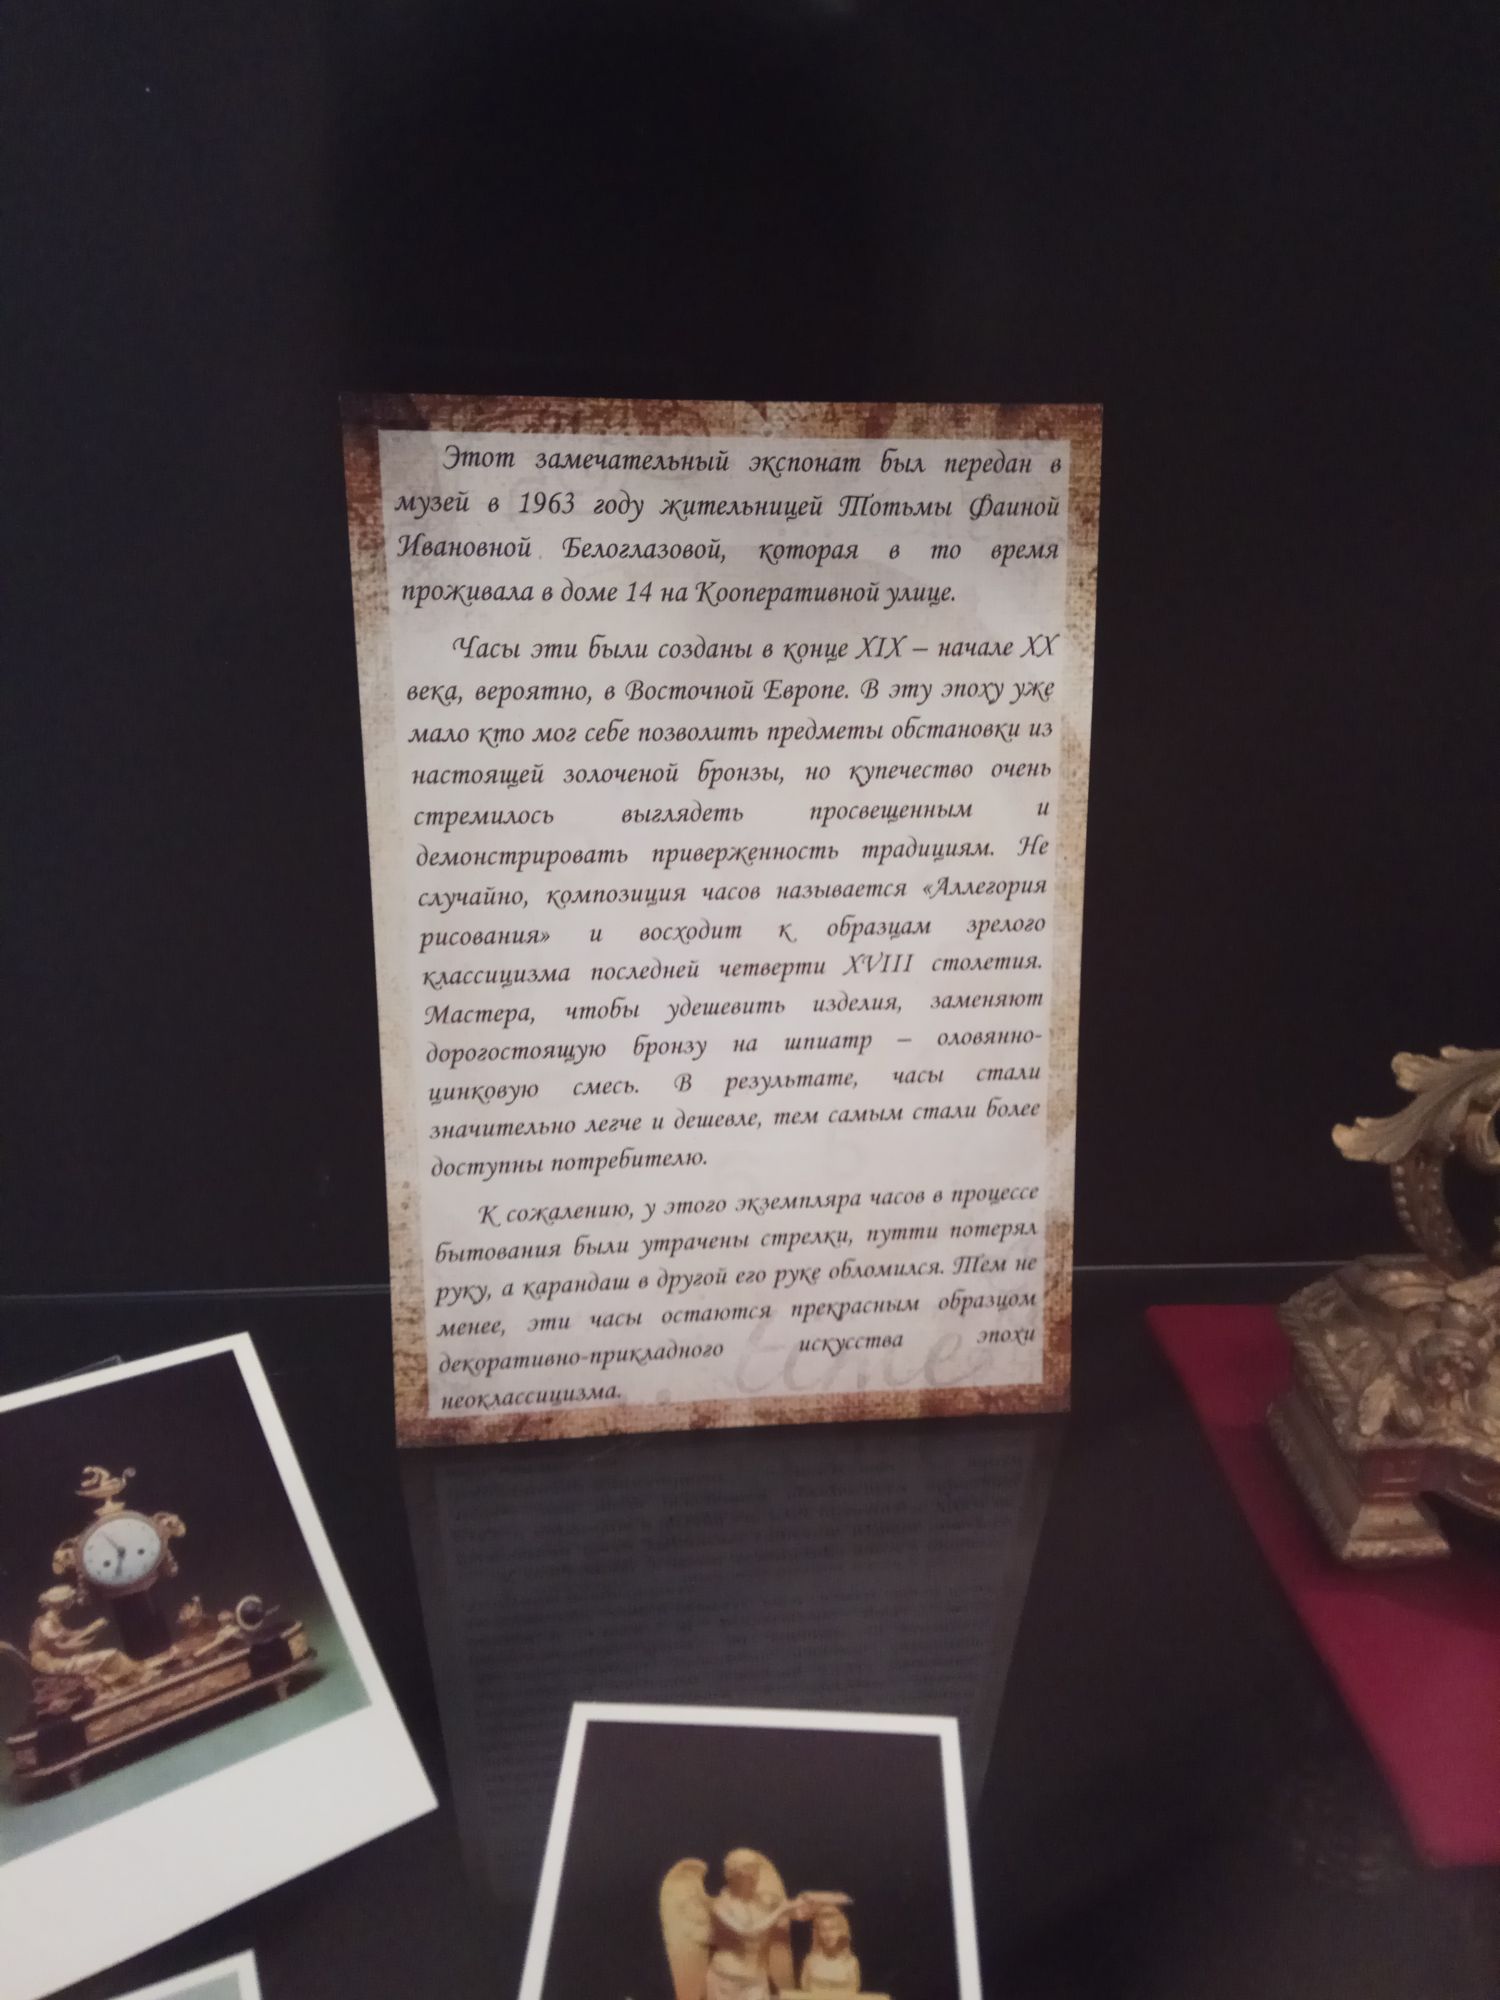 Этот замечательный экспонат был передан в
музей в 1963 году жительницей Тотьмы Фаиной
Ивановной Белоглазовой, которая в то время
проживала в доме 14 на Кооперативной улице.
Часы эти были созданы в конце XIX – начале XX
века, вероятно, в Восточной Европе. В эту эпоху уже
мало кто мог себе позволить предметы обстановки из
настоящей золоченой бронзы, но купечество очень
стремилось выглядеть просвещенным и
демонстрировать приверженность традициям. Не
случайно, композиция часов называется «Аллегория
рисования» и восходит к образцам зрелого
классицизма последней четверти XVIII столетия.
Мастера, чтобы удешевить изделия, заменяют
дорогостоящую бронзу на шпиатр – оловянно-
цинковую смесь. В результате, часы стали
значительно легче и дешевле, тем самым стали более
доступны потребителю.
К сожалению, у этого экземпляра часов в процессе
бытования были утрачены стрелки, путти потерял
руку, а карандаш в другой его руке обломился. Тем не
менее, эти часы остаются прекрасным образцом
декоративно-прикладного искусства эпохи
неоклассицизма.